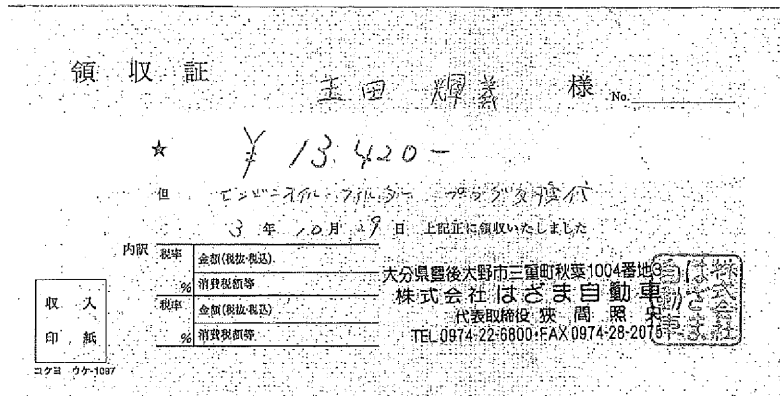 領収証
玉田 輝義 様 No.
☆ ¥13,420-
但 エンジンオイル・フィルター プラグ交換代
3年10月29日 上記正に領収いたしました
内訳 税率 % 金額(税抜・税込)
消費税額等
税率 % 金額(税抜・税込)
消費税額等
収入
印紙
コクヨ ウケ-1097
大分県豊後大野市三重町秋葉1004番地3
株式会社 はざま自動車
代表取締役 狭間照央
TEL 0974-22-6800・FAX 0974-28-2075
株式会社
はざま
自動車